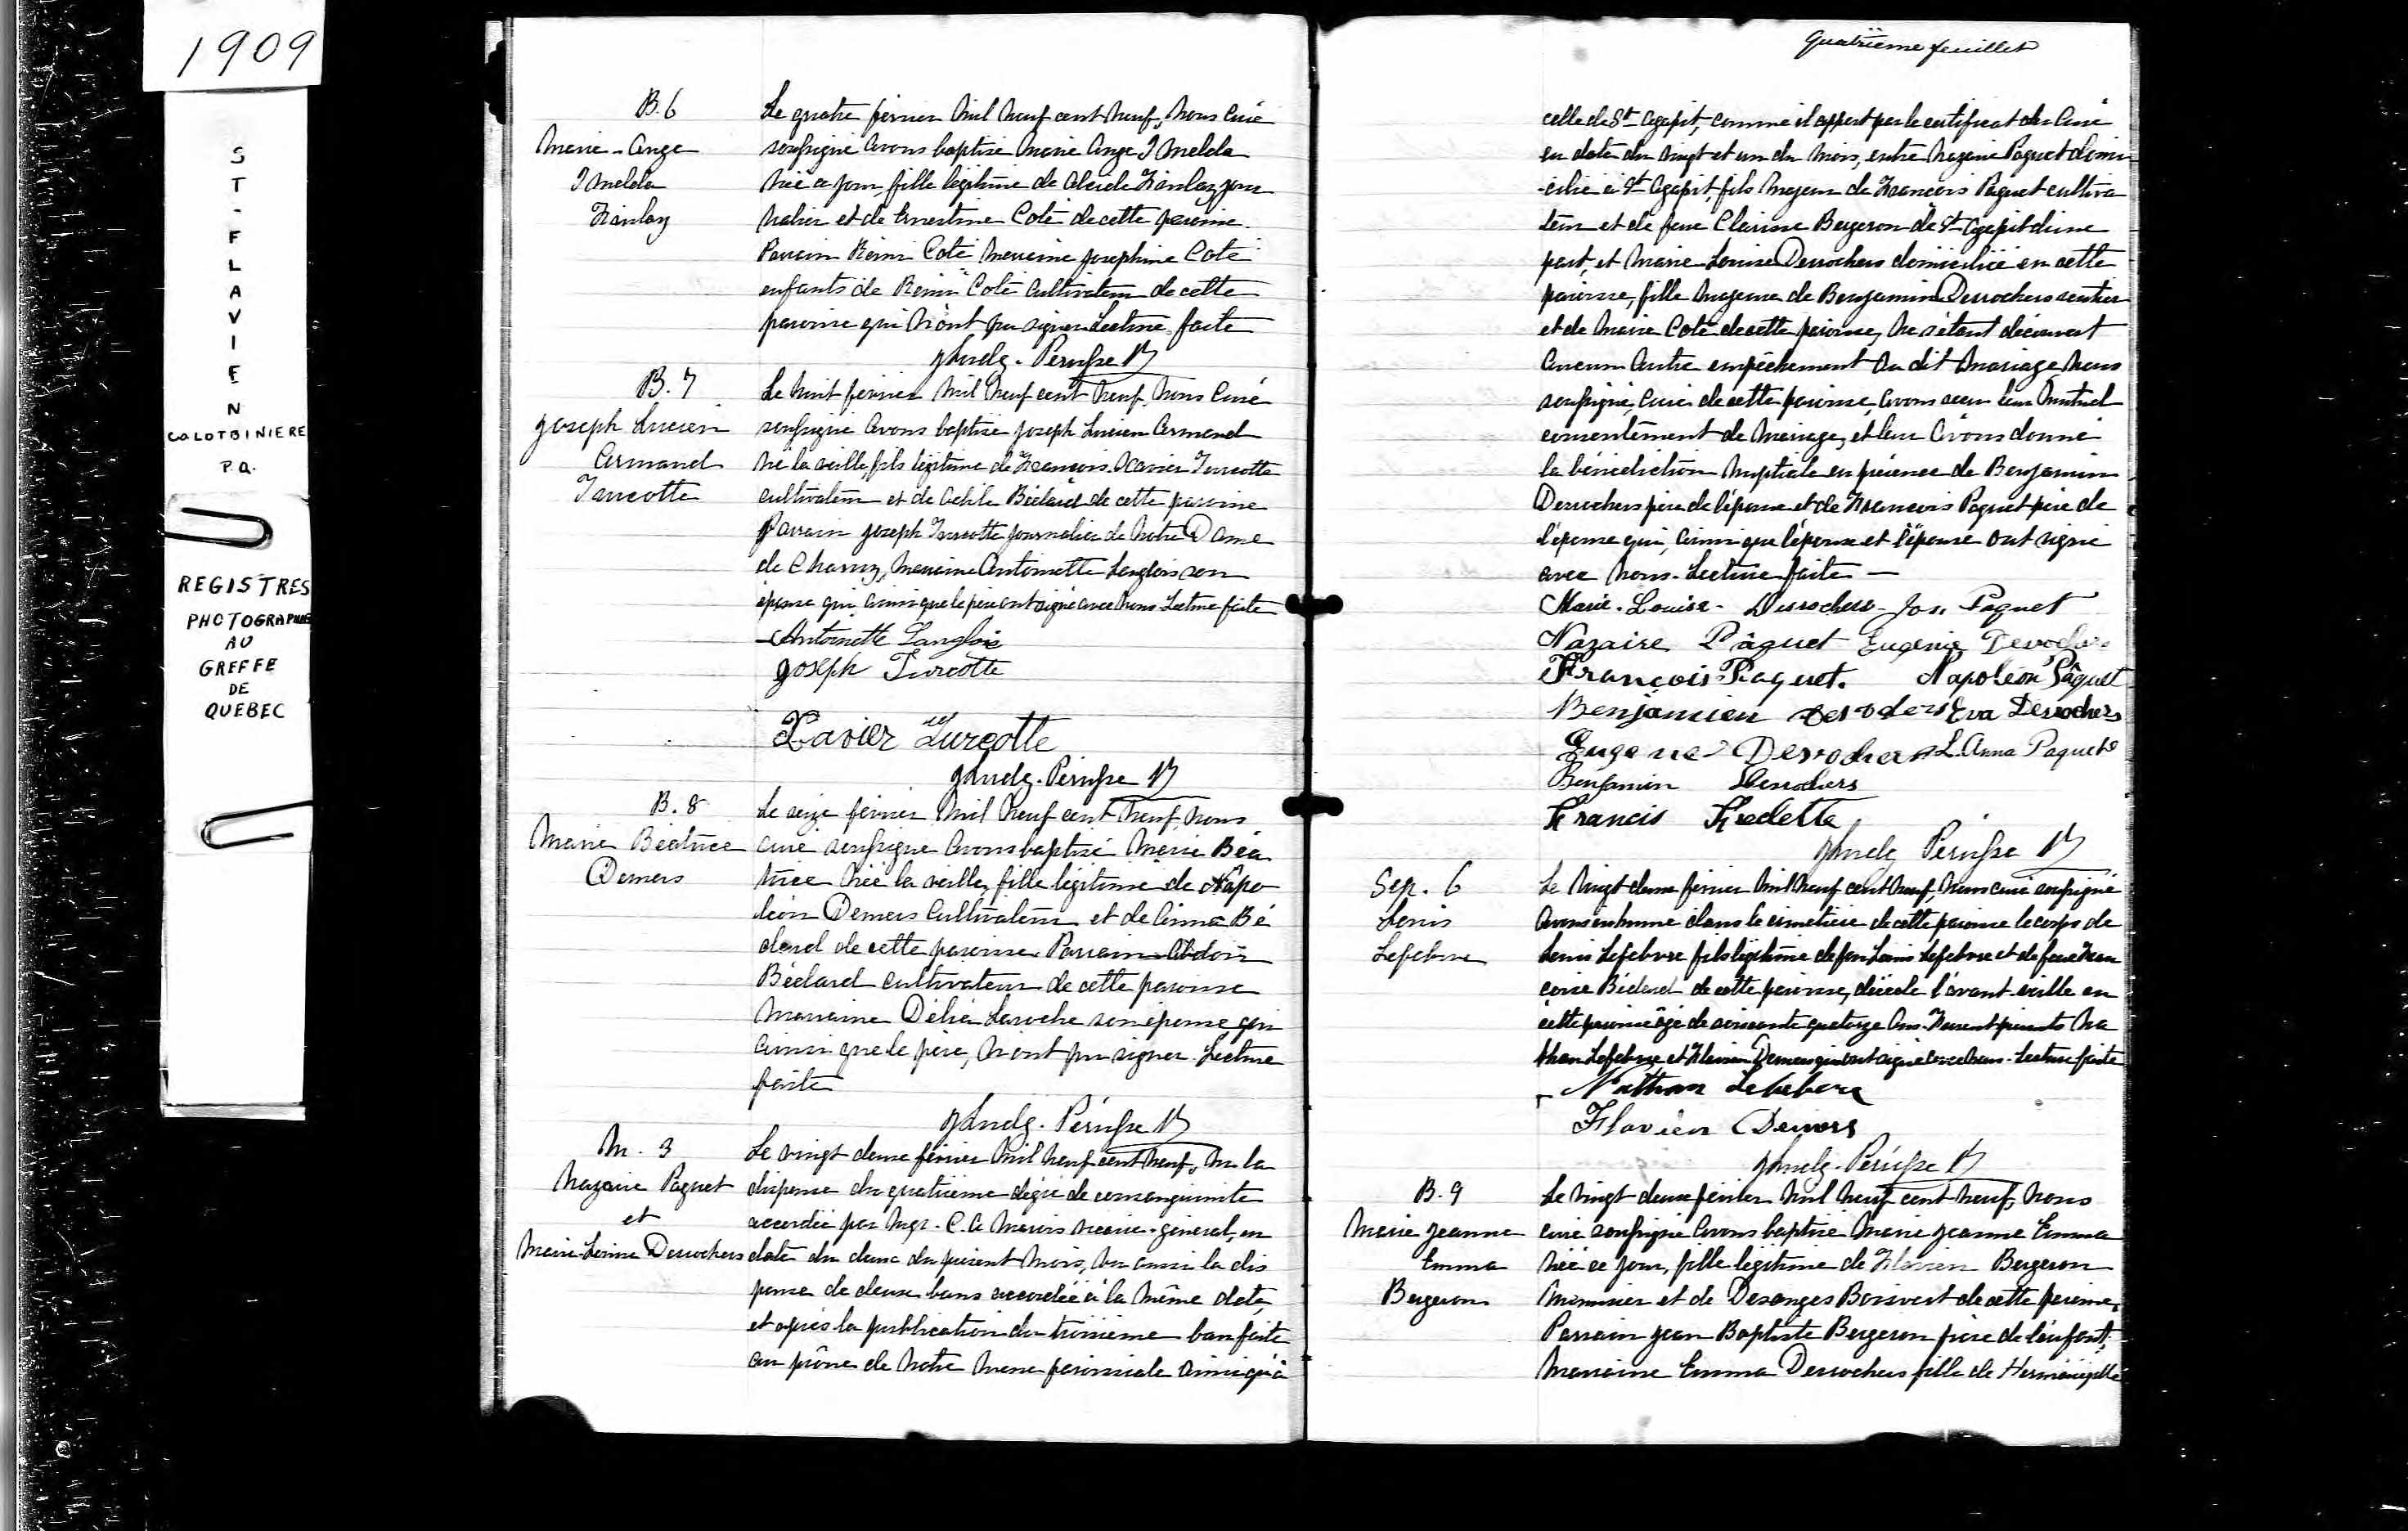 1909
ST-FLAVIEN
COLOTBINIERE
P.Q.
REGISTRES
PHOTOGRAPHIES
AU
GREFFE
DE
QUEBEC
B. 6
Marie-Ange
Imelda
Hainlay
Le quatre février mil neuf cent neuf, nous curé
soussigné avons baptisé Marie Ange Imelda
née ce jour, fille légitime de jour
nalier et de Ernestine Coté de cette paroisse.
Parrain Rémi Coté marraine Josephine Coté
enfants de Rémi Coté cultivateur de cette
paroisse qui n'ont pu signer. Lecture faite
Pérusse Ptr
B. 7
Joseph Lucien
Armand
Turcotte
Le huit février mil neuf cent neuf, nous curé
soussigné avons baptisé Joseph Lucien Armand
né la veille, fils légitime de François-Xavier Turcotte
cultivateur et de Bédard de cette paroisse
Parrain Joseph Turcotte journalier de Notre Dame
de Charny, marraine Antoinette Langlois son
épouse qui ainsi que le père ont signé avec nous. Lecture faite
Antoinette Langlois
Joseph Turcotte
Xavier Turcotte
Pérusse Ptr
B. 8
Marie Béatrice
Demers
Le seize février mil neuf cent neuf, nous
curé soussigné avons baptisé Marie Béa
trice née la veille, fille légitime de Napo
léon Demers cultivateur et de Anna Bé
dard de cette paroisse. Parrain Abdon
Bédard cultivateur de cette paroisse
Marraine Délia Laroche son épouse qui
ainsi que le père, n'ont pu signer. Lecture
faite
Pérusse Ptr
M. 3
Nazaire Paquet
et
Marie-Louise Desrochers
Le vingt deux février mil neuf cent neuf, vu la
dispense du quatrième dégré de consanguinité
accordée par Mgr. C. A. Marois vicaire-général, en
date du deux du présent mois, vu aussi la dis
pense de deux bans accordée à la même date,
et après la publication du troisième ban faite
au prône de notre messe paroissiale ainsi qu'à
Quatrième feuillet
celle de St Agapit, comme il appert par le certificat du Curé
en date du vingt et un du mois, entre Nazaire Paquet domi
-cilié à St Agapit, fils majeur de François Paquet cultiva
teur et de feue Clarisse Bergeron de St Agapit d'une
part, et Marie Louise Desrochers domiciliée en cette
paroisse, fille majeure de Benjamin Desrochers rentier
et de Marie Coté de cette paroisse, ne s'étant découvert
aucun autre empêchement au dit mariage nous
soussigné, curé de cette paroisse, avons reçu leur mutuel
consentement de mariage, et leur avons donné
la bénédiction nuptiale en présence de Benjamin
Desrochers père de l'épouse et de François Paquet père de
l'époux qui, ainsi que l'époux et l'épouse ont signé
avec nous. Lecture faite —
Marie-Louise-Desrochers-Jos. Paquet
Nazaire Pâquet Eugénie Desrochers
François Paquet. Napoléon Pâquet
Benjamien Eva Desrochers
Eugene Desrochers L. Anna Paquet
Benjamin Desrochers
Francis Fredette
Pérusse Ptr
Sep. 6
Louis
Lefebvre
Le vingt deux février mil neuf cent neuf, nous curé soussigné
avons inhumé dans le cimetière de cette paroisse le corps de
Louis Lefebvre fils légitime de feu Louis Lefebvre et de feue Fran
çoise Bédard de cette paroisse, décédé l'avant-veille en
cette paroisse âgé de soixante quatorze ans. Furent présents Na
than Lefebvre et Flavien Demers qui ont signé avec nous. Lecture faite
Nathan Lefebvre
Flavien Demers
Pérusse Ptr
B. 9
Marie Jeanne
Emma
Bergeron
Le vingt deux février mil neuf cent neuf, nous
curé soussigné avons baptisé Marie Jeanne Emma
née ce jour, fille légitime de Flavien Bergeron
menuisier et de Desanges Boisvert de cette paroisse.
Parrain Jean Baptiste Bergeron frère de l'enfant,
Marraine Emma Desrochers fille de Herménégilde